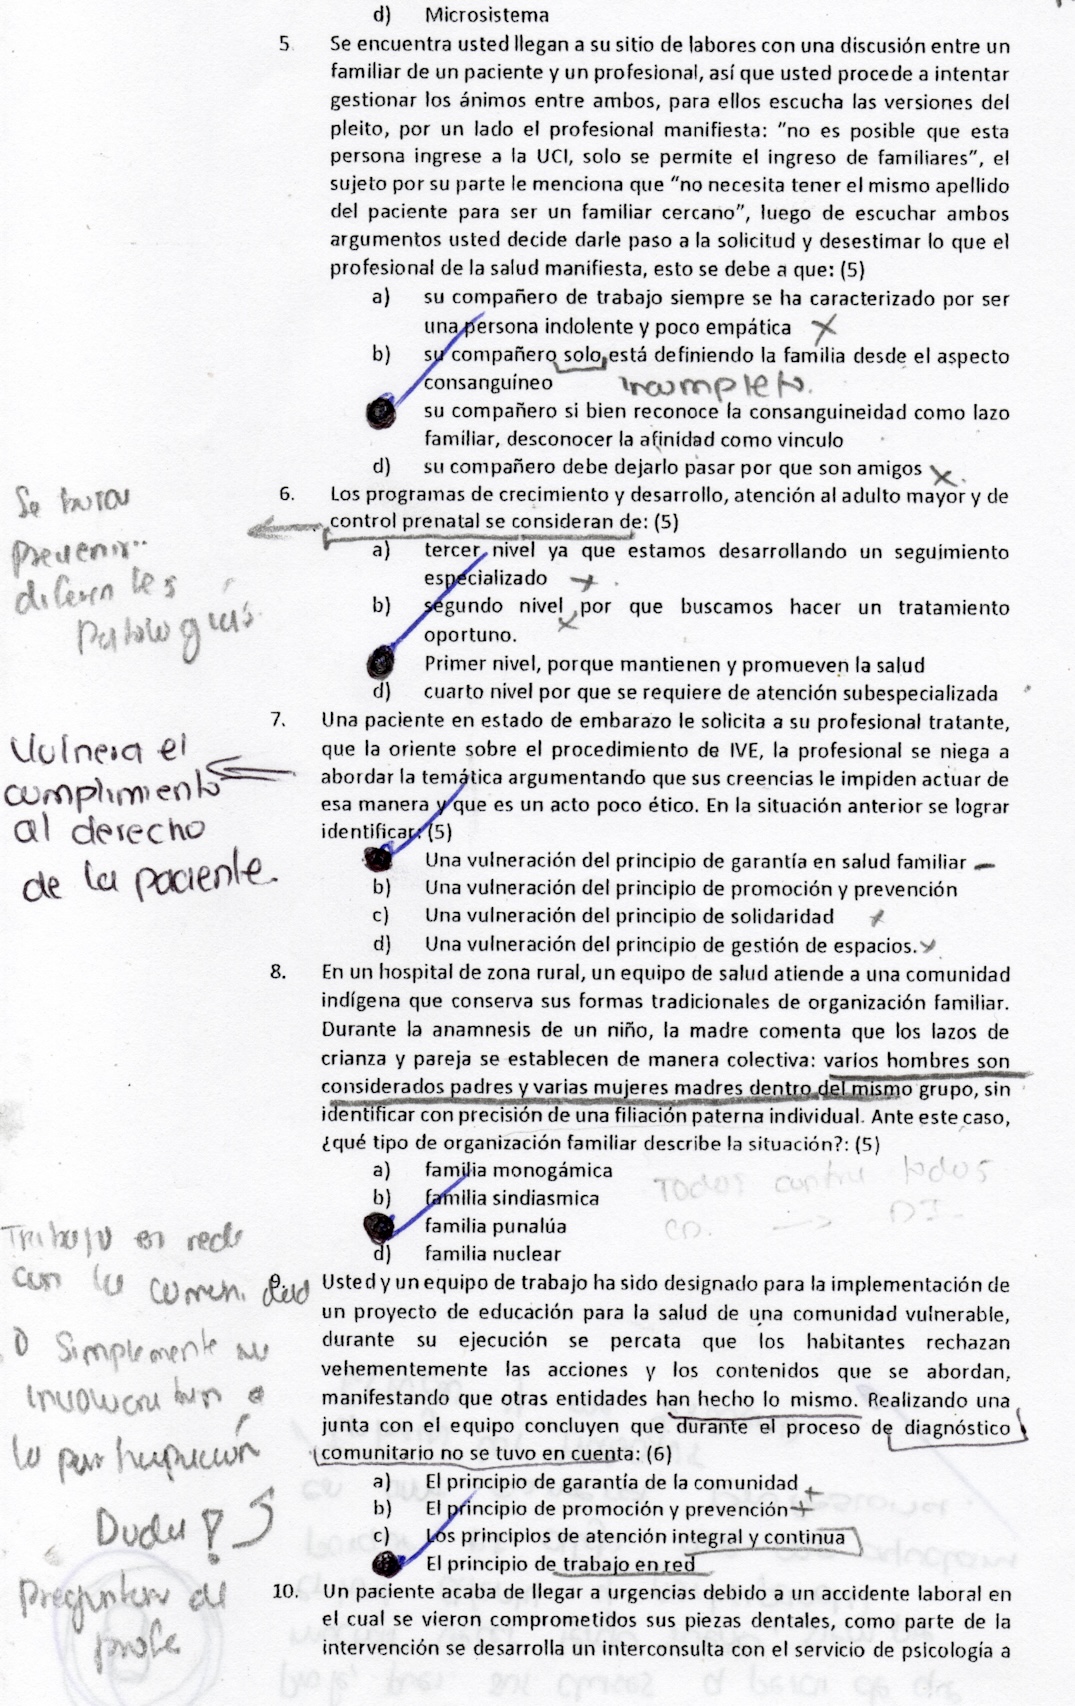 d) Microsistema
5 Se encuentra usted llegan a su sitio de labores con una discusión entre un
familiar de un paciente y un profesional, así que usted procede a intentar
gestionar los ánimos entre ambos, para ellos escucha las versiones del
pleito, por un lado el profesional manifiesta: "no es posible que esta
persona ingrese a la UCI, solo se permite el ingreso de familiares", el
sujeto por su parte le menciona que "no necesita tener el mismo apellido
del paciente para ser un familiar cercano", luego de escuchar ambos
argumentos usted decide darle paso a la solicitud y desestimar lo que el
profesional de la salud manifiesta, esto se debe a que: (5)
a) su compañero de trabajo siempre se ha caracterizado por ser
una persona indolente y poco empática
b) su compañero solo está definiendo la familia desde el aspecto
consanguíneo incompleto.
su compañero si bien reconoce la consanguineidad como lazo
familiar, desconocer la afinidad como vinculo
d) su compañero debe dejarlo pasar por que son amigos
6. Los programas de crecimiento y desarrollo, atención al adulto mayor y de
control prenatal se consideran de: (5)
Se busca
prevenir..
diferentes
patologías.
a) tercer nivel ya que estamos desarrollando un seguimiento
especializado
b) segundo nivel por que buscamos hacer un tratamiento
oportuno.
Primer nivel, porque mantienen y promueven la salud
d) cuarto nivel por que se requiere de atención subespecializada
7. Una paciente en estado de embarazo le solicita a su profesional tratante,
que la oriente sobre el procedimiento de IVE, la profesional se niega a
abordar la temática argumentando que sus creencias le impiden actuar de
esa manera y que es un acto poco ético. En la situación anterior se lograr
identificar: (5)
Vulnera el
cumplimiento
al derecho
de la paciente.
Una vulneración del principio de garantía en salud familiar
b) Una vulneración del principio de promoción y prevención
c) Una vulneración del principio de solidaridad
d) Una vulneración del principio de gestión de espacios.
8. En un hospital de zona rural, un equipo de salud atiende a una comunidad
indígena que conserva sus formas tradicionales de organización familiar.
Durante la anamnesis de un niño, la madre comenta que los lazos de
crianza y pareja se establecen de manera colectiva: varios hombres son
considerados padres y varias mujeres madres dentro del mismo grupo, sin
identificar con precisión de una filiación paterna individual. Ante este caso,
¿qué tipo de organización familiar describe la situación?: (5)
a) familia monogámica
b) familia sindiasmica
familia punalúa
d) familia nuclear
Todos contra todos
CD. DI-
9. Usted y un equipo de trabajo ha sido designado para la implementación de
un proyecto de educación para la salud de una comunidad vulnerable,
durante su ejecución se percata que los habitantes rechazan
vehementemente las acciones y los contenidos que se abordan,
manifestando que otras entidades han hecho lo mismo. Realizando una
junta con el equipo concluyen que durante el proceso de diagnóstico
comunitario no se tuvo en cuenta: (6)
Trabajo en rede
con la comunidad
O Simplemente no
involucraban a
la participación
Duda!
Preguntar al
profe
a) El principio de garantía de la comunidad
b) El principio de promoción y prevención
c) Los principios de atención integral y continua
El principio de trabajo en red
10. Un paciente acaba de llegar a urgencias debido a un accidente laboral en
el cual se vieron comprometidos sus piezas dentales, como parte de la
intervención se desarrolla un interconsulta con el servicio de psicología a